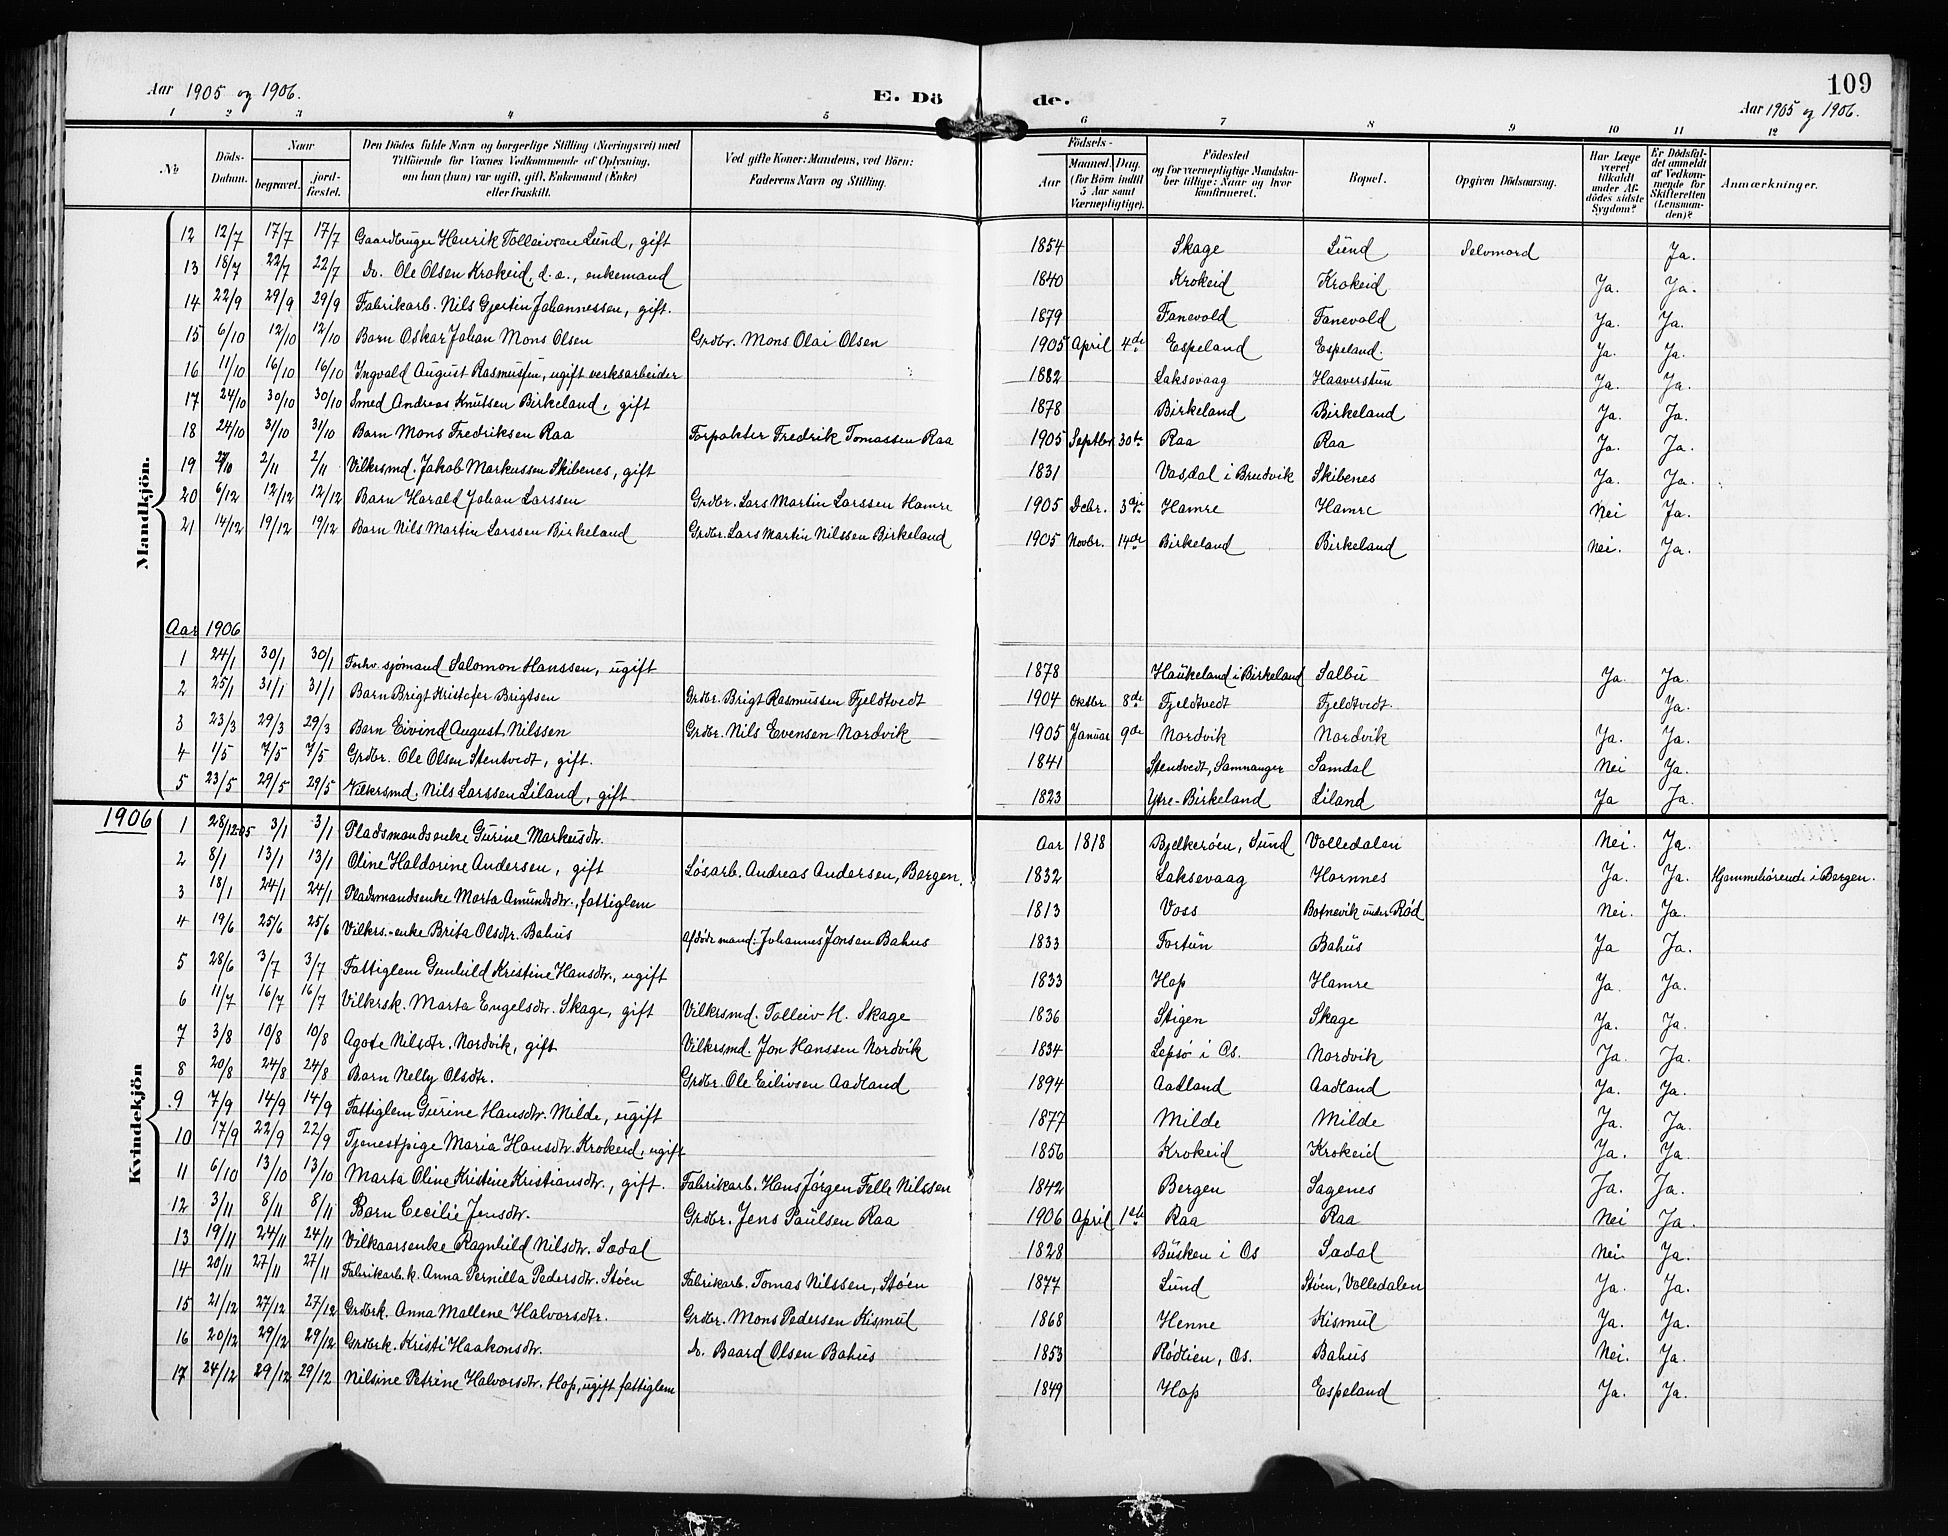 Aar 1905 og 1906.
E. Dö de.
109
Aar 1905 og 1906.
1 2 3 4 5 6 7 8 9 10 11 12
No | Döds-Datum. | Naar begravet. | jordfæstet. | Den Dödes fulde Navn og borgerlige Stilling (Næringsvei) med Tilföiende for Voxnes Vedkommende af Oplysning, om han (hun) var ugift, gift, Enkemand (Enke) eller fraskilt. | Ved gifte Koner: Mandens, ved Börn: Faderens Navn og Stilling. | Födsels- Aar | Maaned. Dag. (for Börn indtil 5 Aar samt Værnepligtige). | Födested og for værnepligtige Mandskaber tillige: Naar og hvor konfirmeret. | Bopæl. | Opgiven Dödsaarsag. | Har Læge været tilkaldt under Afdödes sidste Sygdom? | Er Dödsfaldet anmeldt af Vedkommende for Skifteretten (Lensmanden)? | Anmærkninger.
Mandkjön.
12 12/7 17/7 17/7 Gaardbruger Henrik Tolleivsen Lund, gift 1854 Skage Lund Selvmord Ja.
13 18/7 22/7 22/7 Do. Ole Olsen Krokeid, d. e., enkemand 1840 Krokeid Krokeid Ja. Ja.
14 22/9 29/9 29/9 Fabrikarb. Nils Gjertin Johannessen, gift. 1879 Fanevold Fanevold Ja. Ja.
15 6/10 12/10 12/10 Barn Oskar Johan Mons Olsen Grdbr. Mons Olai Olsen 1905 April 4de Espeland Espeland. Ja. Ja.
16 11/10 16/10 16/10 Ingvald August Rasmussen, ugift verksarbeider 1882 Laksevaag Haaverstun Ja. Ja.
17 24/10 30/10 30/10 Smed Andreas Knutsen Birkeland, gift 1878 Birkeland Birkeland Ja. Ja.
18 24/10 31/10 31/10 Barn Mons Fredriksen Raa Forpakter Fredrik Tomassen Raa 1905 Septbr 30te Raa Raa Ja. Ja.
19 27/10 2/11 2/11 Vilkrsmd. Jakob Markussen Skibenes, gift 1831 Vasdal i Bruvik Skibenes Ja. Ja.
20 6/12 12/12 12/12 Barn Harald Johan Larssen Grdbr. Lars Martin Larssen Hamre 1905 Dcbr. 3die Hamre Hamre Nei Ja.
21 14/12 19/12 19/12 Barn Nils Martin Larssen Birkeland Grdbr. Lars Martin Nilssen Birkeland 1905 Novbr. 14de Birkeland Birkeland Nei. Ja.
Aar 1906
1 24/1 30/1 30/1 Forhv. sjømand Salomon Hanssen, ugift 1878 Haukeland i Birkeland Salbu Ja. Ja.
2 25/1 31/1 31/1 Barn Brigt Kristofer Brigtsen Grdbr. Brigt Rasmussen Fjeldtvedt 1904 Oktbr. 8de Fjeldtvedt Fjeldtvedt. Ja.
3 23/3 29/3 29/3 Barn Eivind August Nilssen Grdbr. Nils Evensen Nordvik 1905 Januar 9de Nordvik Nordvik Ja. Ja.
4 1/5 7/5 7/5 Grdbr. Ole Olsen Stentvedt, gift. 1841 Stentvedt, Samnanger Samdal Nei Ja.
5 23/5 29/5 29/5 Vilkrsmd. Nils Larssen Liland, gift 1823 Ytre-Birkeland Liland Ja Ja.
1906
Kvindekjön
1 28/12-05 3/1 3/1 Pladsmandsenke Gurine Markusdtr. Aar 1818 Bjelkerøen, Sund Volledalen Nei. Ja.
2 8/1 13/1 13/1 Oline Haldorine Andersen, gift Løsarb. Andreas Andersen, Bergen. 1832 Laksevaag Hornnes Ja. Ja. Hjemmehørende i Bergen.
3 18/1 24/1 24/1 Pladsmandsenke Marta Amundsdtr., fattiglem 1813 Voss Botnevik under Rød Nei. Ja.
4 19/6 25/6 25/6 Vilkrs.-enke Brita Olsdtr. Bahus Afdøde mand: Johannes Jonsen Bahus 1833 Fortun Bahus Ja Ja.
5 28/6 3/7 3/7 Fattiglem Gunhild Kristine Hansdtr., ugift 1833 Hop Hamre Ja. Ja.
6 11/7 16/7 16/7 Vilkrsk. Marta Engelsdtr. Skage, gift Vilkrsmd. Tolleiv H. Skage 1836 Stigen Skage Ja. Ja.
7 3/8 10/8 10/8 Agote Nilsdtr. Nordvik, gift Vilkrsmd. Jon Hanssen Nordvik 1834 Lepsø i Os. Nordvik Ja. Ja.
8 20/8 24/8 24/8 Barn Nelly Olsdtr. Grdbr. Ole Eilivsen Aadland 1894 Aadland Aadland Ja. Ja.
9 7/9 14/9 14/9 Fattiglem Gurine Hansdtr. Milde, ugift 1877 Milde Milde Ja. Ja.
10 17/9 22/9 22/9 Tjenestpige Maria Hansdtr. Krokeid, ugift 1856 Krokeid Krokeid Ja. Ja.
11 6/10 13/10 13/10 Marta Oline Kristine Kristiansdtr., gift. Fabrikarb. Hans Jørgen Felle Nilssen 1842 Bergen Sagenes Ja. Ja.
12 3/11 8/11 8/11 Barn Cecilie Jensdtr. Grdbr. Jens Paulsen Raa 1906 April 1ste Raa Raa Nei Ja.
13 19/11 24/11 24/11 Vilkaarsenke Ragnhild Nilsdtr. Sædal 1828 Busken i Os Sædal Nei Ja.
14 20/11 27/11 27/11 Fabrikarb.k. Anna Pernilla Pedersdtr. Støen Fabrikarb. Tomas Nilssen, Støen 1877 Lund Støen, Volledalen Ja. Ja.
15 21/12 27/12 27/12 Grdbrk. Anna Mallene Halvorsdtr. Grdbr. Mons Pedersen Kismul 1868 Henne Kismul Ja. Ja.
16 20/12 29/12 29/12 Grdbrk. Kristi Haakonsdtr. Do. Baard Olsen Bahus 1853 Rødlien, Os. Bahus Nei. Ja.
17 24/12 29/12 29/12 Nilsine Petrine Halvorsdtr. Hop, ugift fattiglem 1849 Hop Espeland Ja. Ja.